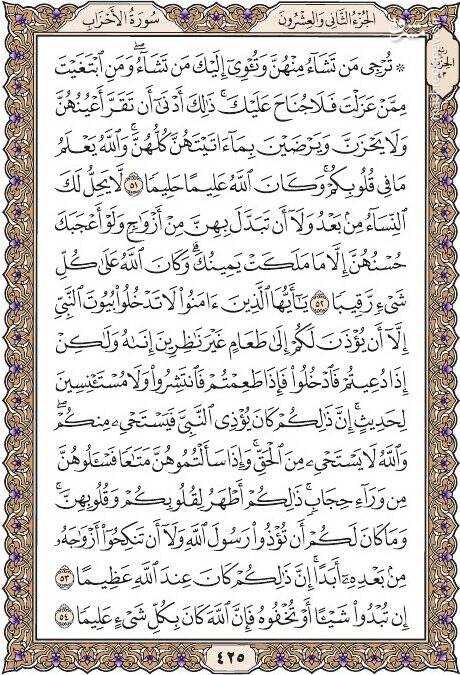 سُورَةُ الأَحْزَابِ
الجُزْءُ الثَّانِي وَالعِشْرُونَ
۞ تُرْجِي مَن تَشَآءُ مِنْهُنَّ وَتُـْٔوِيٓ إِلَيْكَ مَن تَشَآءُۖ وَمَنِ ٱبْتَغَيْتَ
مِمَّنْ عَزَلْتَ فَلَا جُنَاحَ عَلَيْكَۚ ذَٰلِكَ أَدْنَىٰٓ أَن تَقَرَّ أَعْيُنُهُنَّ
وَلَا يَحْزَنَّ وَيَرْضَيْنَ بِمَآ ءَاتَيْتَهُنَّ كُلُّهُنَّۚ وَٱللَّهُ يَعْلَمُ
مَا فِي قُلُوبِكُمْۚ وَكَانَ ٱللَّهُ عَلِيمًا حَلِيمًا ٥١ لَّا يَحِلُّ لَكَ
ٱلنِّسَآءُ مِنۢ بَعْدُ وَلَآ أَن تَبَدَّلَ بِهِنَّ مِنْ أَزْوَٰجٍ وَلَوْ أَعْجَبَكَ
حُسْنُهُنَّ إِلَّا مَا مَلَكَتْ يَمِينُكَۗ وَكَانَ ٱللَّهُ عَلَىٰ كُلِّ
شَيْءٍ رَّقِيبًا ٥٢ يَٰٓأَيُّهَا ٱلَّذِينَ ءَامَنُوا۟ لَا تَدْخُلُوا۟ بُيُوتَ ٱلنَّبِيِّ
إِلَّآ أَن يُؤْذَنَ لَكُمْ إِلَىٰ طَعَامٍ غَيْرَ نَٰظِرِينَ إِنَىٰهُ وَلَٰكِنْ
إِذَا دُعِيتُمْ فَٱدْخُلُوا۟ فَإِذَا طَعِمْتُمْ فَٱنتَشِرُوا۟ وَلَا مُسْتَـْٔنِسِينَ
لِحَدِيثٍۚ إِنَّ ذَٰلِكُمْ كَانَ يُؤْذِي ٱلنَّبِيَّ فَيَسْتَحْيِۦ مِنكُمْۖ
وَٱللَّهُ لَا يَسْتَحْيِۦ مِنَ ٱلْحَقِّۚ وَإِذَا سَأَلْتُمُوهُنَّ مَتَٰعًا فَسْـَٔلُوهُنَّ
مِن وَرَآءِ حِجَابٍۚ ذَٰلِكُمْ أَطْهَرُ لِقُلُوبِكُمْ وَقُلُوبِهِنَّۚ
وَمَا كَانَ لَكُمْ أَن تُؤْذُوا۟ رَسُولَ ٱللَّهِ وَلَآ أَن تَنكِحُوٓا۟ أَزْوَٰجَهُۥ
مِنۢ بَعْدِهِۦٓ أَبَدًاۚ إِنَّ ذَٰلِكُمْ كَانَ عِندَ ٱللَّهِ عَظِيمًا ٥٣
إِن تُبْدُوا۟ شَيْـًٔا أَوْ تُخْفُوهُ فَإِنَّ ٱللَّهَ كَانَ بِكُلِّ شَيْءٍ عَلِيمًا ٥٤
٤٢٥